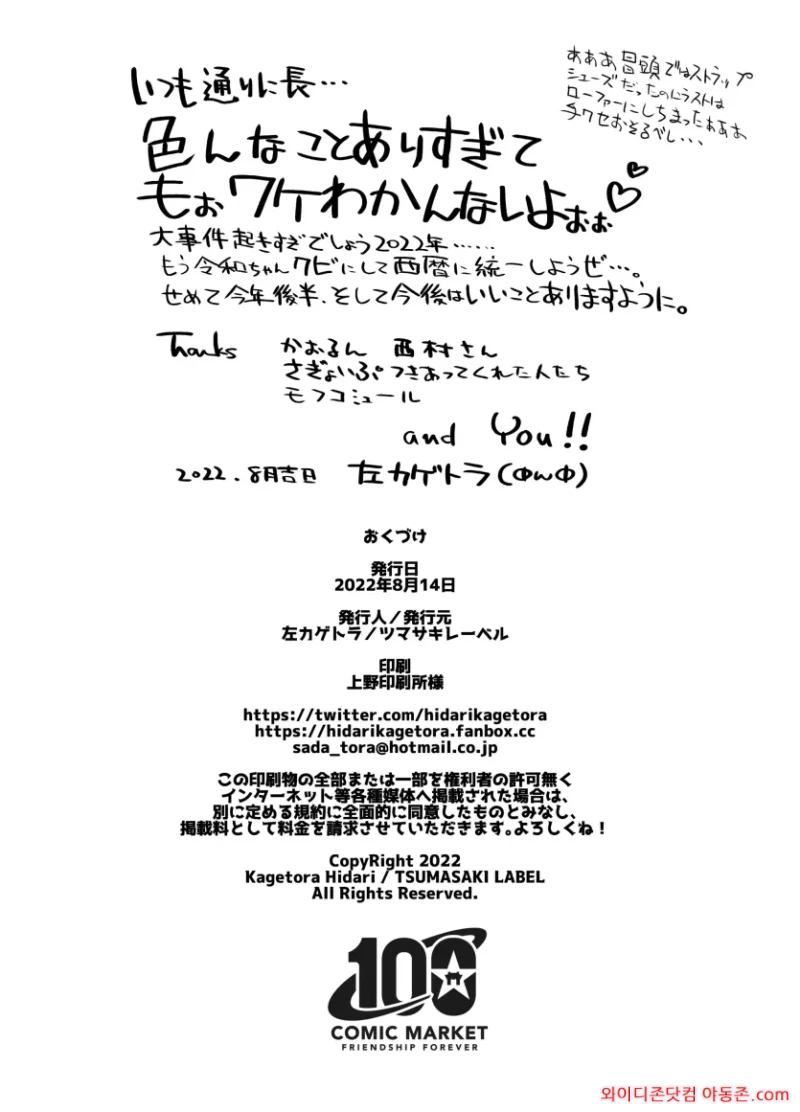 いつも通りに長…
あああ冒頭ではストラップ
シューズだったのにラストは
ローファーにしちまったあああ
手クセおそるべし…
色んなことありすぎて
もぉワケわかんないよぉぉ♡♡
大事件起きすぎでしょう2022年……
もう令和ちゃんクビにして西暦に統一しようぜ…。
せめて今年後半、そして今後はいいことありますように。
Thanks かおるん 西村さん
さぎょいぷつきあってくれた人たち
モフコミュール
and You!!
2022.8月吉日 左カゲトラ(ΦんΦ)
おくづけ
発行日
2022年8月14日
発行人／発行元
左カゲトラ／ツマサキレーベル
印刷
上野印刷所様
https://twitter.com/hidarikagetora
https://hidarikagetora.fanbox.cc
sada_tora@hotmail.co.jp
この印刷物の全部または一部を権利者の許可無く
インターネット等各種媒体へ掲載された場合は、
別に定める規約に全面的に同意したものとみなし、
掲載料として料金を請求させていただきます。よろしくね！
CopyRight 2022
Kagetora Hidari / TSUMASAKI LABEL
All Rights Reserved.
100
COMIC MARKET
FRIENDSHIP FOREVER
와이디존닷컴 야동존.com